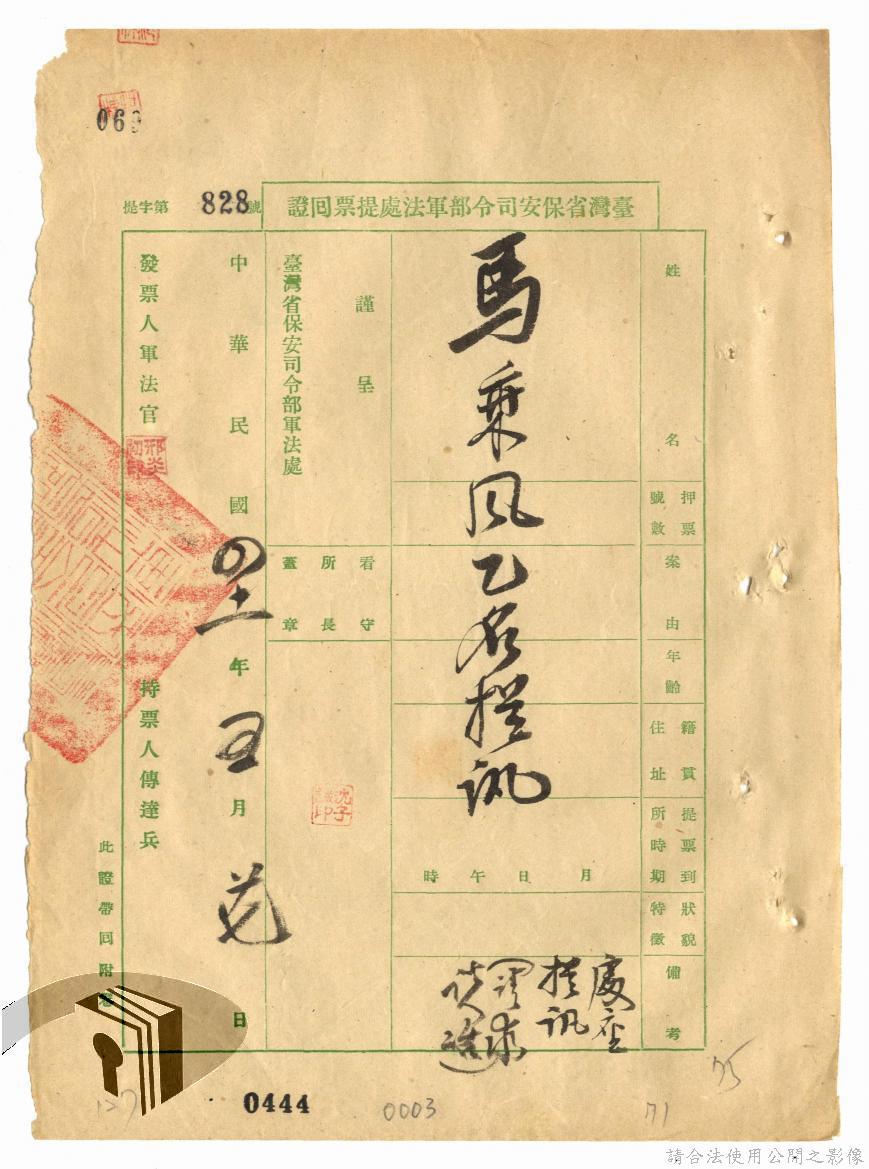 069
臺灣省保安司令部軍法處提票回證
提字第828號
姓名
押票號數
案由
年齡
籍貫住址
提票到所時期
狀貌特徵
備考
馬乘風乙名提訊
月 日 午 時
處座
提訊
謹呈
臺灣省保安司令部軍法處
看守所長蓋章
中華民國四十一年五月 日
發票人軍法官
持票人傳達兵
此證帶回附卷
0444
0003
71
75
127
請合法使用公開之影像